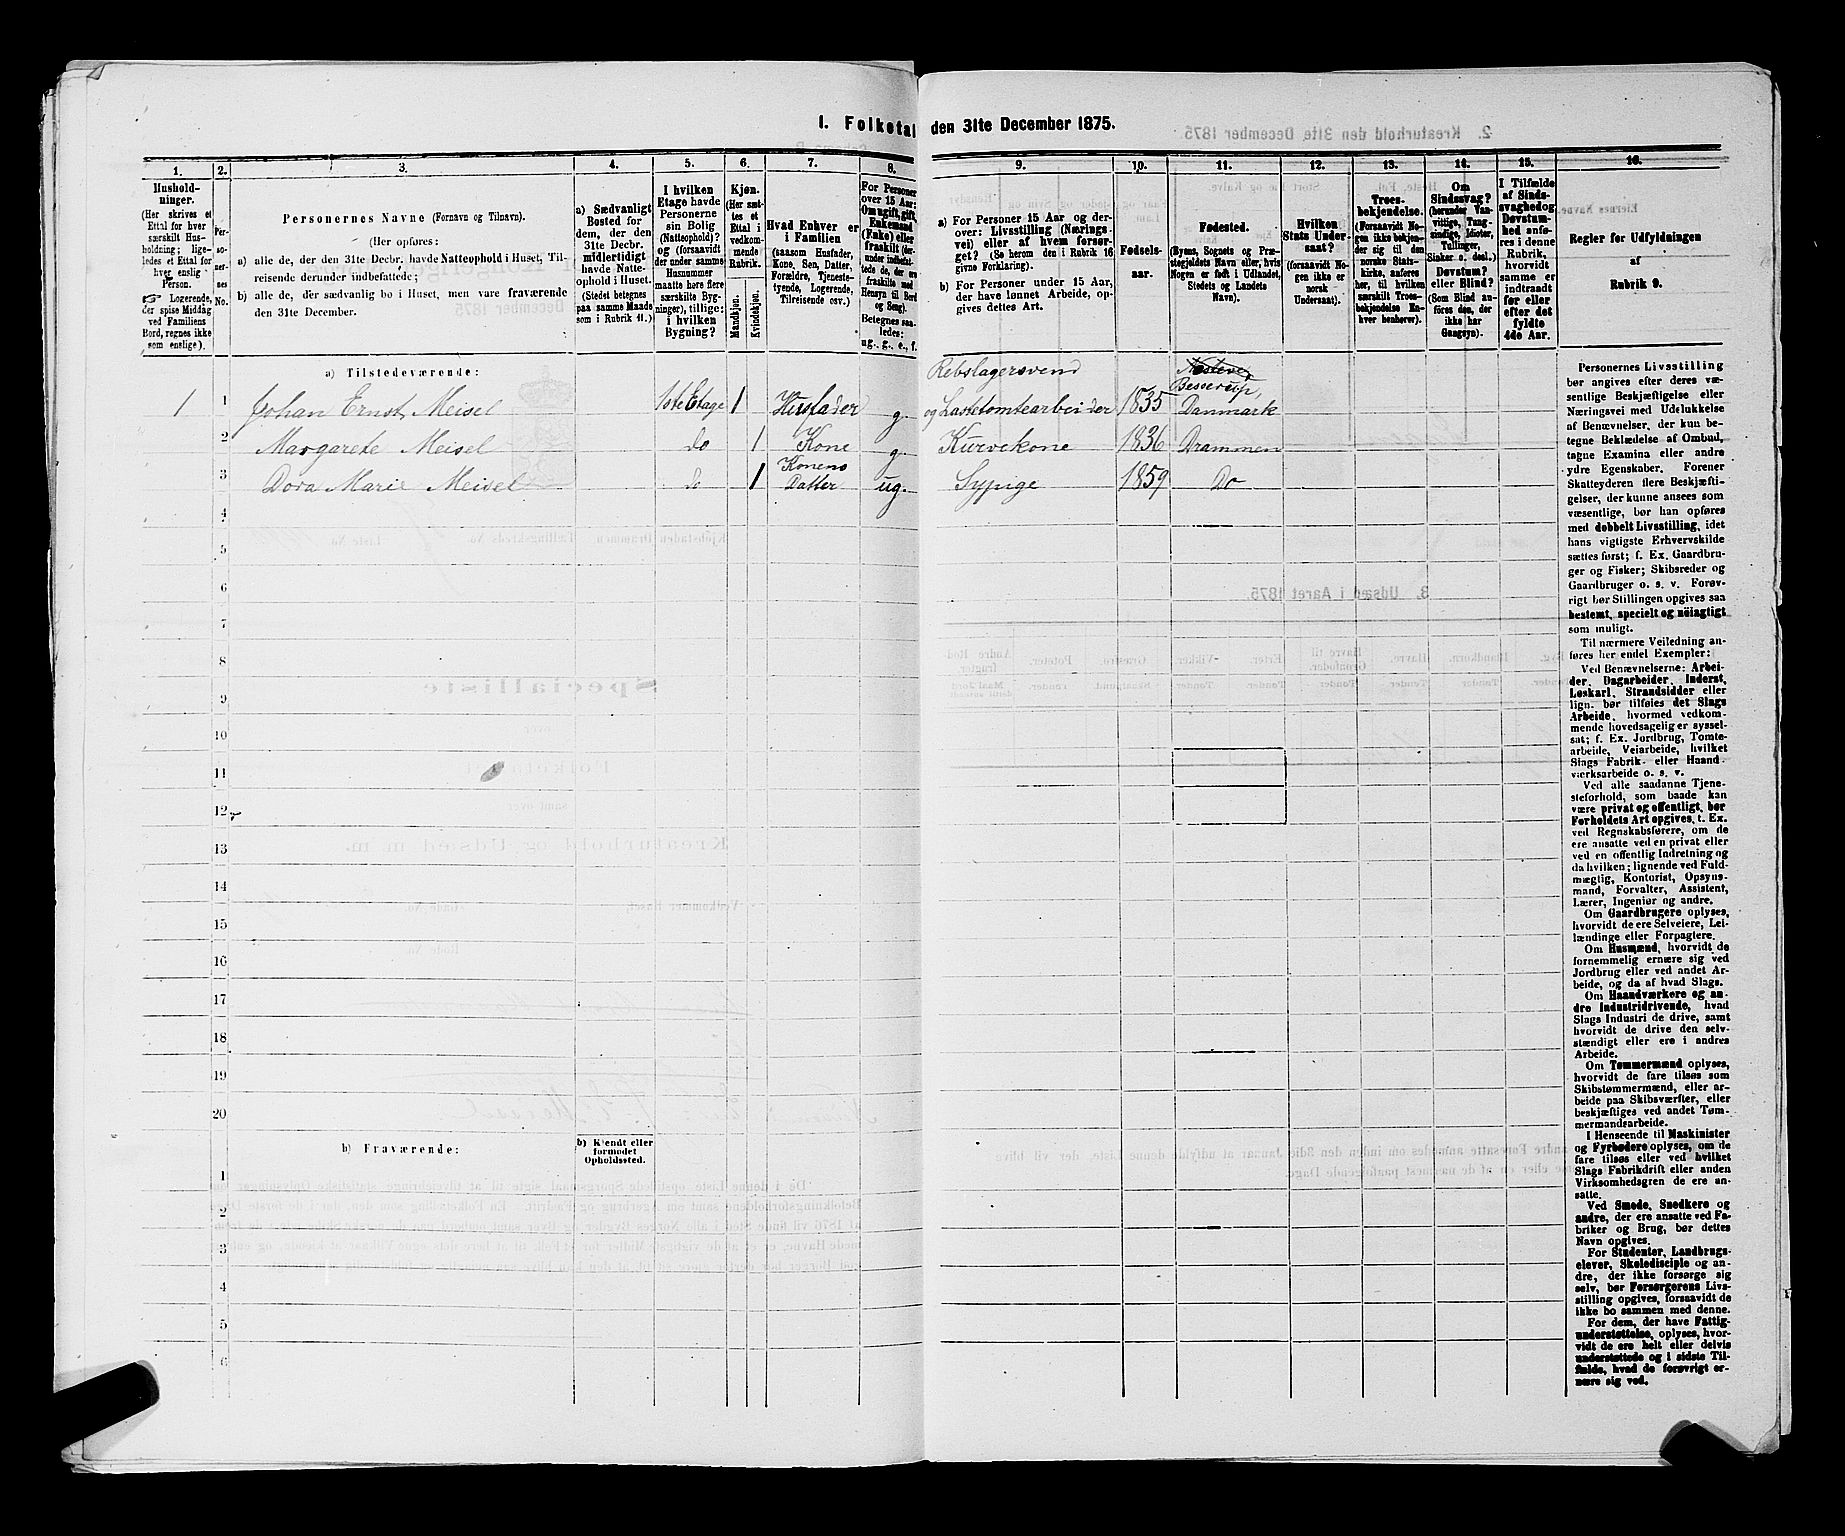 I. Folketal den 31te December 1875.
1. 2. 3. 4. 5. 6. 7. 8. 9. 10. 11. 12. 13. 14. 15. 16.
Hushold-
ninger.
(Her skrives et
Ettal for hver
særskilt Hus-
holdning; lige-
ledes et Ettal for
hver enslig
Person.
☞ Logerende,
der spise Middag
ved Familiens
Bord, regnes ikke
som enslige).
Per-
so-
ner-
nes
No.
Personernes Navne (Fornavn og Tilnavn).
(Her opføres:
a) alle de, der den 31te Decbr. havde Natteophold i Huset, Til-
reisende derunder indbefattede;
b) alle de, der sædvanlig bo i Huset, men vare fraværende
den 31te December.
a) Sædvanligt
Bosted for
dem, der den
31te Decbr.
midlertidigt
havde Natte-
ophold i Huset.
(Stedet betegnes
paa samme Maade
som i Rubrik 11.)
I hvilken
Etage havde
Personerne
sin Bolig
(Natteophold)?
og (forsaavidt
der under samme
Husnummer
maatte høre flere
særskilte Byg-
ninger), tillige:
i hvilken
Bygning?
Kjøn.
(Her sæt-
tes et
Ettal i
vedkom-
mende
Rubrik.
Mandkjøn.
Kvindekjøn.
Hvad Enhver er
i Familien
(saasom Husfader,
Kone, Søn, Datter,
Forældre, Tjeneste-
tyende, Logerende,
Tilreisende osv.)
For Personer
over 15 Aar:
Om ugift, gift,
Enkemand
(Enke) eller
fraskilt (der-
under indbefat-
tede de, der ere
fraskilte med
Hensyn til Bord
og Seng).
Betegnes saa-
ledes:
ug., g., e., f.
a) For Personer 15 Aar og der-
over: Livsstilling (Nærings-
vei) eller af hvem forsør-
get? (Se herom den i Rubrik 16
givne Forklaring).
b) For Personer under 15 Aar,
der have lønnet Arbeide, op-
gives dettes Art.
Fødsels-
aar.
Fødested.
(Byens, Sognets og Præ-
stegjeldets Navn eller, hvis
Nogen er født i Udlandet,
Stedets og Landets
Navn).
Hvilken
Stats Under-
saat?
(forsaavidt No-
gen ikke er
norsk
Undersaat).
Troes-
bekjendelse.
(Forsaavidt No-
gen ikke bekjen-
der sig til den
norske Stats-
kirke, anføres
her, til hvilken
særskilt Troes-
bekjendelse En-
hver henhører).
Om
Sindssvag?
(herunder Van-
vittige, Tung-
sindige, Idioter,
Tullinger,
Sinker o. desl.)
Døvstum?
eller Blind?
(Som Blind an-
føres den, der
ikke har
Gangsyn).
I Tilfælde
af Sinds-
svaghed og
Døvstum-
hed anfø-
res i denne
Rubrik,
hvorvidt
samme er
indtraadt
før eller
efter det
fyldte
4de Aar.
Regler for Udfyldningen
af
Rubrik 9.
a) Tilstedeværende:
Rebslagersvend
Besserup,
1 1 Johan Ernst Meisel 1ste Etage 1 Husfader g. og Lastetomtearbeider 1835 Danmark
2 Margarete Meisel do 1 Kone g. Kurvekone 1836 Drammen
Konens
3 Dora Marie Meisel do 1 Datter ug. Sypige 1859 Do
4
5
6
7
8
9
10
11
12
13
14
15
16
17
18
19
20
b) Fraværende:
b) Kjendt eller
formodet
Opholdssted.
1
2
3
4
5
6
Personernes Livsstilling
bør angives efter deres væ-
sentlige Beskjæftigelse eller
Næringsvei med Udelukkelse
af Benævnelser, der kun be-
tegne Beklædelse af Ombud,
tagne Examina eller andre
ydre Egenskaber. Forener
Skatteyderen flere Beskjæfti-
gelser, der kunne ansees som
væsentlige, bør han opføres
med dobbelt Livsstilling, idet
hans vigtigste Erhvervskilde
sættes først; f. Ex. Gaardbru-
ger og Fisker; Skibsreder og
Gaardbruger o. s. v. Forøv-
rigt bør Stillingen opgives saa
bestemt, specielt og nöiagtigt
som muligt.
Til nærmere Veiledning an-
føres her endel Exempler:
Ved Benævnelserne: Arbei-
der, Dagarbeider, Inderst,
Løskarl, Strandsidder eller
lign. bør tilføies det Slags
Arbeide, hvormed vedkom-
mende hovedsagelig er syssel-
sat; f. Ex. Jordbrug, Tomte-
arbeide, Veiarbeide, hvilket
Slags Fabrik- eller Haand-
værksarbeide o. s. v.
Ved alle saadanne Tjene-
steforhold, som baade kan
være privat og offentligt, bør
Forholdets Art opgives, t. Ex.
ved Regnskabsførere, om de
ere ansatte ved en privat eller
ved en offentlig Indretning og
da hvilken; lignende ved Fuld-
mægtig, Kontorist, Opsyns-
mand, Forvalter, Assistent,
Lærer, Ingeniør og andre.
Om Gaardbrugere oplyses,
hvorvidt de ere Selveiere, Lei-
lændinge eller Forpagtere.
Om Husmænd, hvorvidt de
fornemmelig ernære sig ved
Jordbrug eller ved andet Ar-
beide, og da af hvad Slags.
Om Haandværkere og an-
dre Industridrivende, hvad
Slags Industri de drive, samt
hvorvidt de drive den selv-
stændigt eller ere i andres
Arbeide.
Om Tømmermænd oplyses,
hvorvidt de fare tilsøs som
Skibstømmermænd, eller ar-
beide paa Skibsværfter, eller
beskjæftiges ved andet Tøm-
mermandsarbeide.
I Henseende til Maskinister
og Fyrbødere oplyses, om de
fare tilsøs eller ved hvilket
Slags Fabrikdrift eller anden
Virksomhedsgren de ere an-
satte.
Ved Smede, Snedkere og
andre, der ere ansatte ved Fa-
briker og Brug, bør dettes
Navn opgives.
For Studenter, Landbrugs-
elever, Skoledisciple og an-
dre, der ikke forsørge sig
selv, bør Forsørgerens Livs-
stilling opgives, forsaavidt de
ikke bo sammen med denne.
For dem, der have Fattig-
understøttelse, oplyses, hvor-
vidt de ere helt eller delvis
understøttede og i sidste Til-
fælde, hvad de forøvrigt er-
nære sig ved.